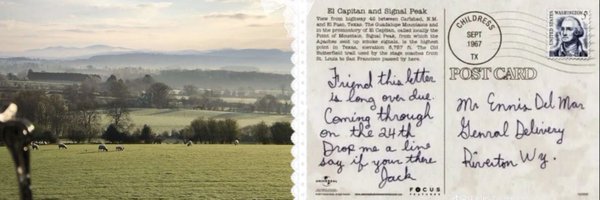 El Capitan and Signal Peak
View from highway 62 between Carlsbad, N.M.
and El Paso, Texas. The Guadalupe Mountains and
in the promontory of El Capitan, called locally the
Point of Mountain, Signal Peak, from which the
Apaches sent up smoke signals, is the highest
point in Texas, elevation 8,757 ft. The Old
Butterfield trail used by the stage coaches from
St. Louis to San Francisco passed by here.
Friend this letter
is long over due.
Coming through
on the 24th
Drop me a line
say if your there
Jack
UNIVERSAL
FOCUS
FEATURES
CHILDRESS
SEPT
1967
TX
WASHINGTON
5¢
POST CARD
Mr Ennis Del Mar
Genral Delivery
Riverton Wy.